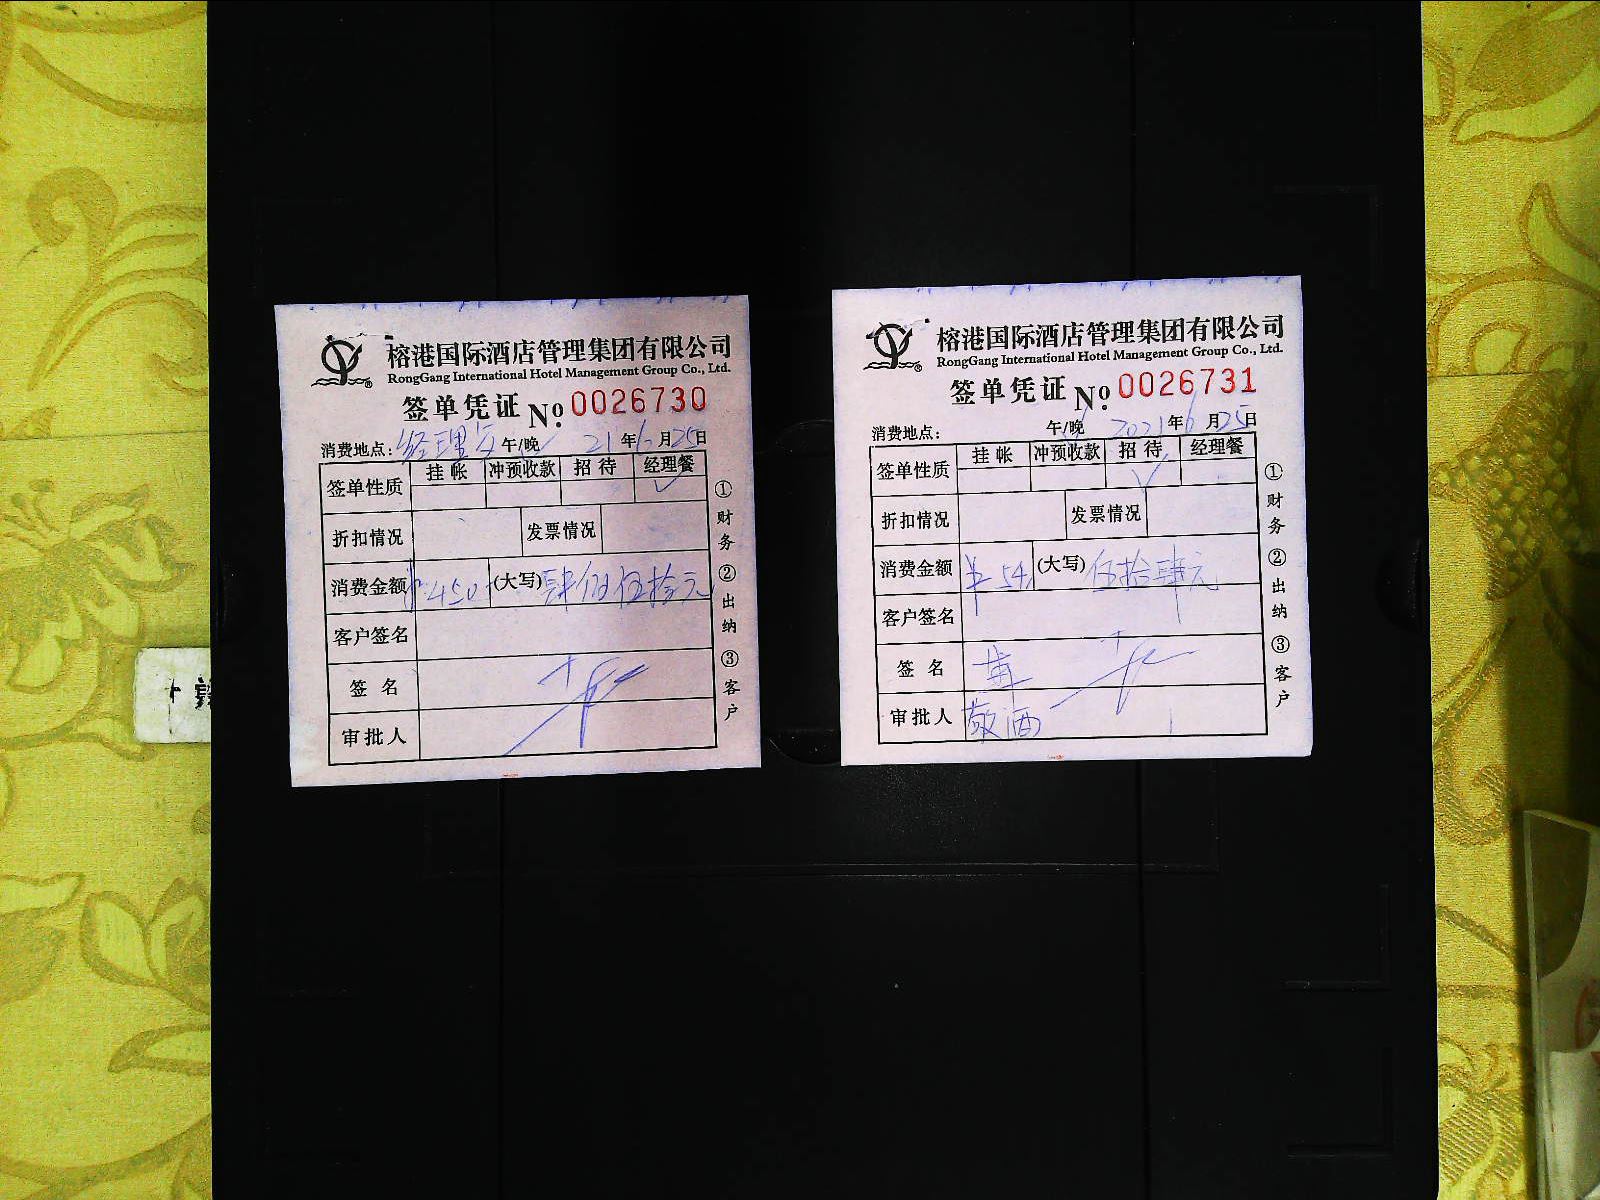 榕港国际酒店管理集团有限公司
RongGang International Hotel Management Group Co., Ltd.
签单凭证 No. 0026730
消费地点: 经理 午/晚 21 年 6 月 25 日
签单性质 挂帐 冲预收款 招待 经理餐 ✓
折扣情况 发票情况
消费金额 ¥:450 (大写) 肆佰伍拾元
客户签名
签名
审批人
① 财务 ② 出纳 ③ 客户
榕港国际酒店管理集团有限公司
RongGang International Hotel Management Group Co., Ltd.
签单凭证 No. 0026731
消费地点: 午/晚 2021 年 6 月 25 日
签单性质 挂帐 冲预收款 招待 ✓ 经理餐
折扣情况 发票情况
消费金额 ¥ 54 (大写) 伍拾肆元
客户签名
签名
审批人 敬酒
① 财务 ② 出纳 ③ 客户